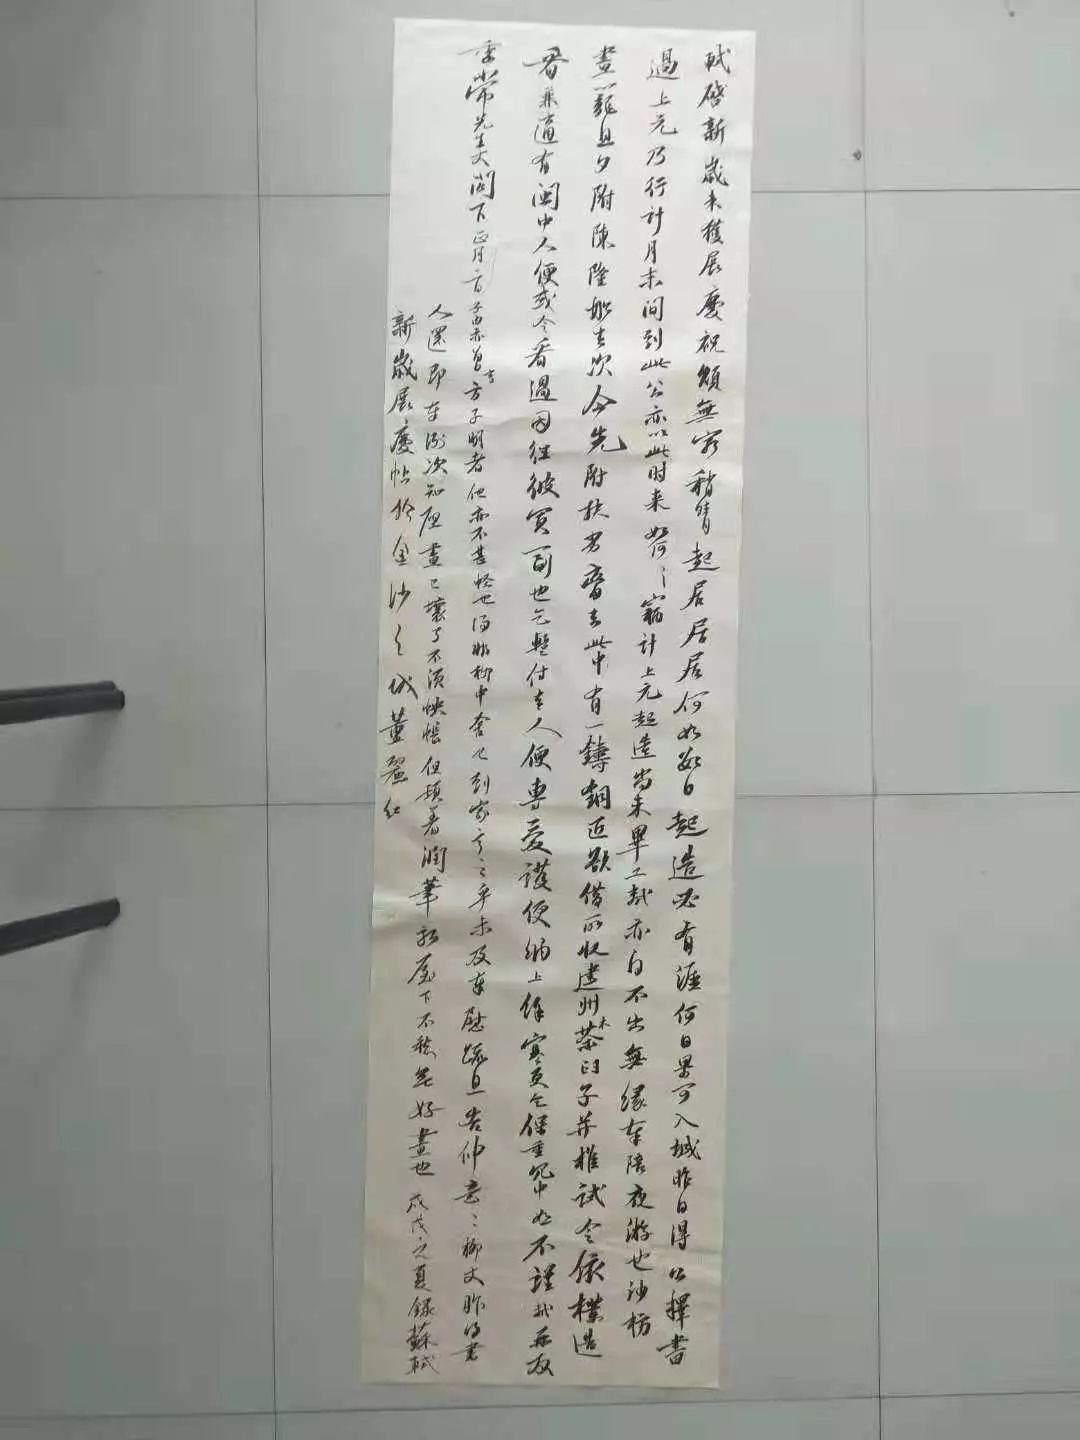 軾啓新歲未獲展慶祝頌無窮稍晴起居居居何如數日起造必有涯何日果可入城昨日得公擇書
過上元乃行計月末間到此公亦以此時来如何〻竊計上元起造尚未畢工軾亦自不出無緣奉陪夜游也沙枋
畫籠旦夕附陳隆船去次今先附扶劣膏去此中有一鑄銅匠欲借所收建州木茶臼子并椎試令依樣造
看兼適有閩中人便或令看過因往彼買一副也乞暫付去人便專愛護便納上餘寒更乞保重冗中恕不謹軾再拜
季常先生丈閣下正月二日子由亦曾言方子明者他亦不甚怪也得非柳中舍已到家言之乎未及奉慰疏且告伸意〻柳丈昨得書
人還即奉謝次知壁畫已壞了不須怏悵但頓著潤筆新屋下不愁無好畫也 戊戌之夏録蘇軾
新歲展慶帖於金沙之城董麗紅